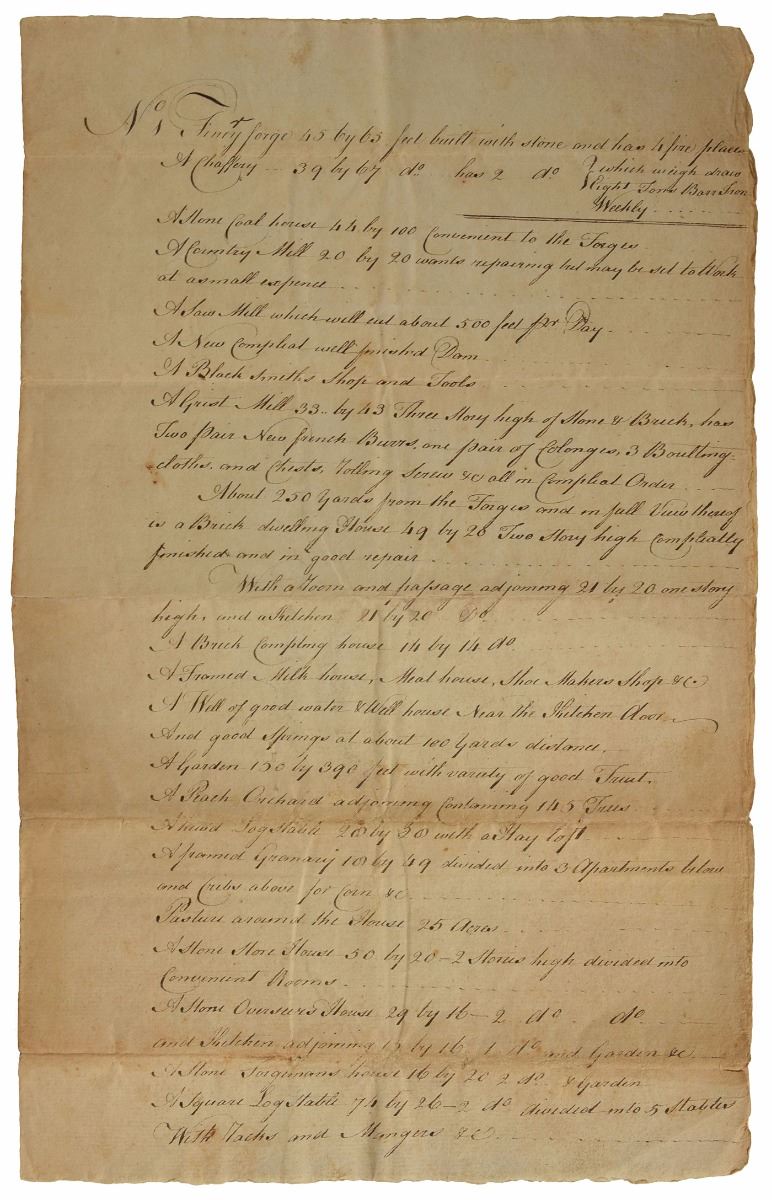 No. 1 Finery forge 45 by 65 feet built with stone and has 4 fire places
A Chaffery 39 by 67 do. has 2 do. which weigh draw
Eight Tons Barr Iron
Weekly
A Stone Coal house 44 by 100 Convenient to the Forges
A Country Mill 20 by 20 wants repairing but may be set to Work
at a small expence
A Saw Mill which will cut about 500 feet pr Day.
A New Compleat well finished Dam
A Black Smiths Shop and Tools
A Grist Mill 33 by 43 Three Story high of Stone & Brick, has
Two pair New french Burrs, one pair of Colonges, 3 Boulting-
cloths, and Chests, Rolling Screw &c all in Compleat Order
About 250 Yards from the Forges and in full View thereof
is a Brick dwelling House 49 by 28 Two Story high Compleatly
finished and in good repair
With a Room and passage adjoining 21 by 20 one story
high, and a Kitchen 21 by 20 Do.
A Brick Compting house 14 by 14 do.
A Framed Milk house, Meat house, Shoe Makers Shop &c.
A Well of good water & Well house Near the Kitchen Door
And good Springs at about 100 Yards distance.
A Garden 150 by 390 feet with variety of good Fruit.
A Peach Orchard adjoining Containing 145 Trees
A hewd Log Stable 28 by 30 with a Hay loft
A framed Granary 18 by 49 divided into 3 Apartments below
and Cribs above for Corn &c.
Pasture around the House 25 Acres
A Stone Store House 50 by 20 - 2 Stories high divided into
Convenient Rooms
A Stone Overseers House 29 by 16 - 2 do. do.
and Kitchen adjoining by 16 1 do and Garden &c.
A Stone Forgemans house 16 by 20 2 do. & Garden
A Square Log Stable 74 by 26 - 2 do divided into 5 Stables
With Racks and Mangers &c.